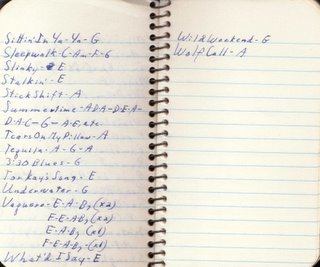 Sittin' In Ya-Ya-G
Sleepwalk-C-Am-F-G
Slinky-E
Stalkin'-E
Stick Shift-A
Summertime-ADA-DEA-
DAC-G-A,Etc.
Tears On My Pillow-A
Tequila-A-G-A
3:30 Blues-G
Tor Kay's Song-E
Underwater-G
Vaquero-E-A-B7(x2)
F-E-A-B7(x2)
E-A-B7(x1)
F-E-A-B7-(x1)
What'd I Say-E
Wild Weekend-G
Wolf Call-A